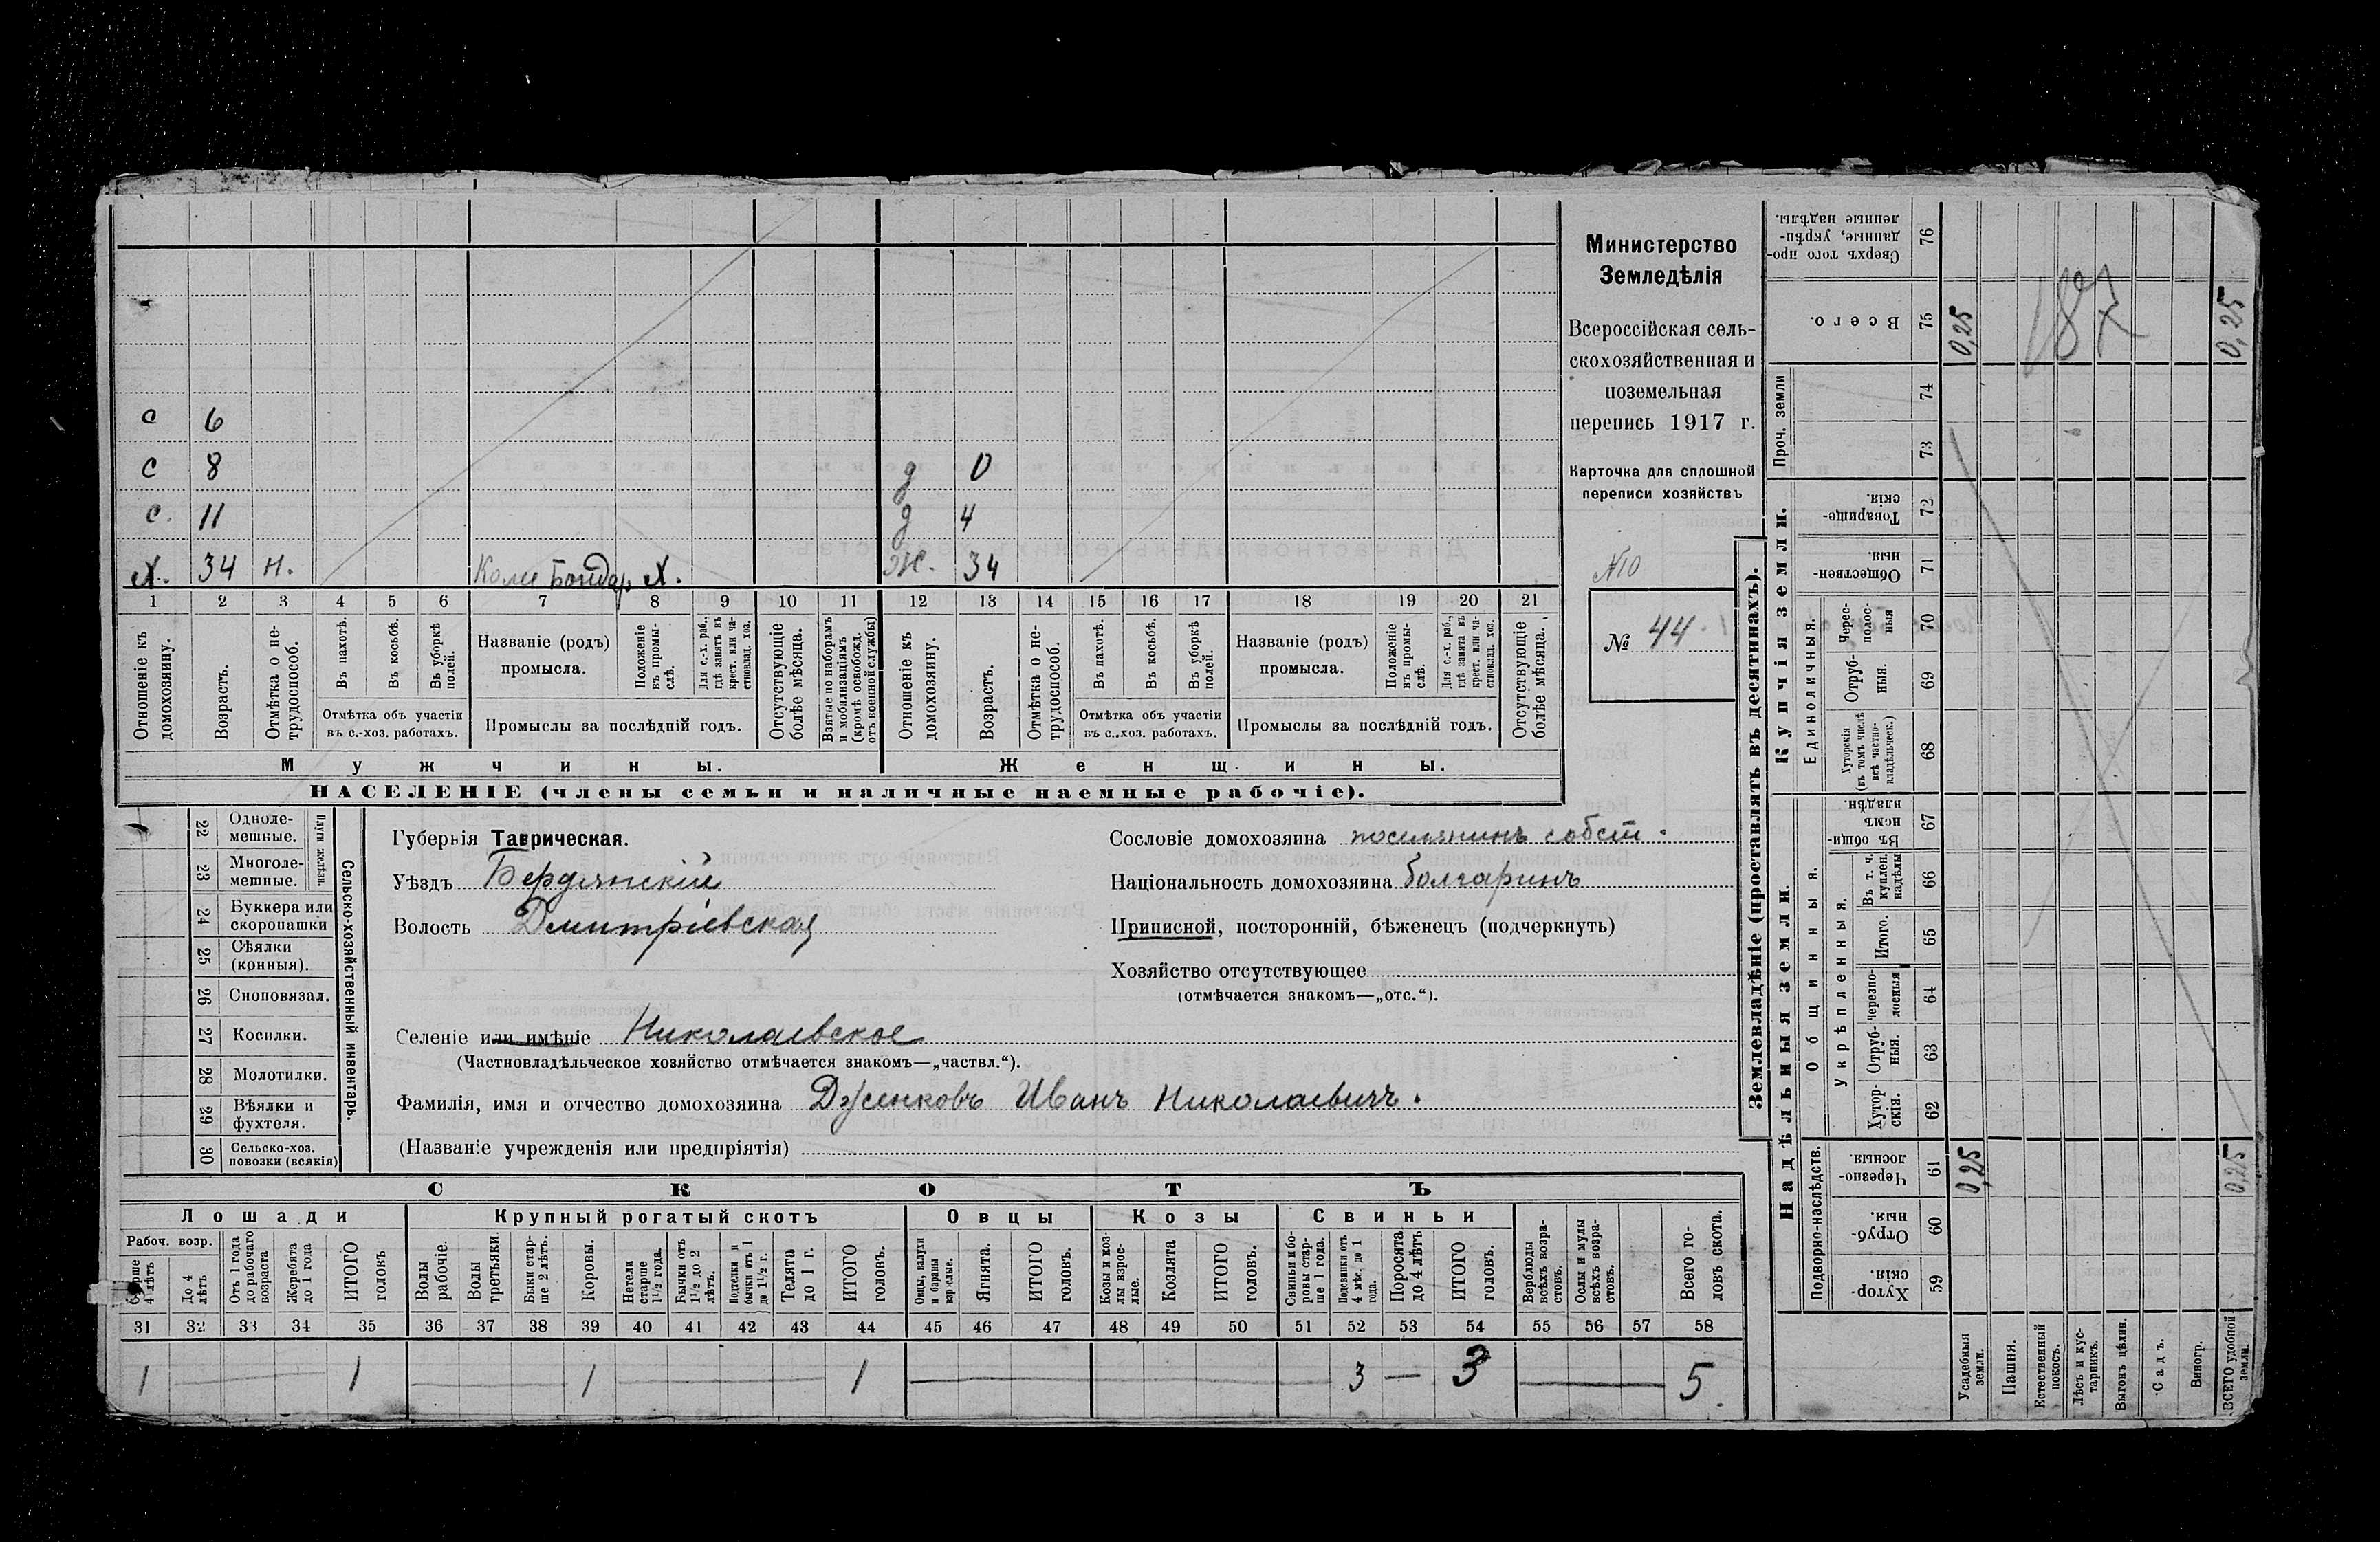 с 6
с 8 д 0
с. 11 д 4
Х. 34 н. Бондар Х. Ж. 34
1 2 3 4 5 6 7 8 9 10 11 12 13 14 15 16 17 18 19 20 21
Отношеніе къ домохозяину.
Возрастъ.
Отмѣтка о не-трудоспособ.
Въ пахотѣ.
Въ косьбѣ.
Въ уборкѣ полей.
Отмѣтка объ участіи
въ с.-хоз. работахъ.
Названіе (родъ)
промысла.
Положеніе въ промы-слѣ.
Для с.-х. раб., гдѣ занятъ въ крест. или ча-стновлад. хоз.
Промыслы за послѣдній годъ.
Отсутствующіе болѣе мѣсяца.
Взятые по наборамъ и мобилизаціямъ (кромѣ освобожд. отъ военной службы)
Отношеніе къ домохозяину.
Возрастъ.
Отмѣтка о не-трудоспособ.
Въ пахотѣ.
Въ косьбѣ.
Въ уборкѣ полей.
Отмѣтка объ участіи
въ с.-хоз. работахъ.
Названіе (родъ)
промысла.
Положеніе въ промы-слѣ.
Для с.-х. раб., гдѣ занята въ крест. или ча-стновлад. хоз.
Промыслы за послѣдній годъ.
Отсутствующіе болѣе мѣсяца.
Мужчины.
Женщины.
НАСЕЛЕНІЕ (члены семьи и наличные наемные рабочіе).
Министерство
Земледѣлія
Всероссійская сель-
скохозяйственная и
поземельная
перепись 1917 г.
Карточка для сплошной
переписи хозяйствъ
№10
№ 44
22 Одноле-мешные.
23 Многоле-мешные.
Плуги желѣзн.
24 Буккера или скоропашки
25 Сѣялки (конныя).
26 Сноповязал.
27 Косилки.
28 Молотилки.
29 Вѣялки и фухтеля.
30 Сельско-хоз. повозки (всякія)
Сельско-хозяйственный инвентарь.
Губернія Таврическая.
Уѣздъ Бердянскій
Волость Дмитріевская
Селеніе или имѣніе Николаевское
(Частновладѣльческое хозяйство отмѣчается знакомъ—„частвл.“).
Фамилія, имя и отчество домохозяина Дженковъ Иванъ Николаевичъ.
(Названіе учрежденія или предпріятія)
Сословіе домохозяина поселянинъ собст.
Національность домохозяина болгаринъ
Приписной, посторонній, бѣженецъ (подчеркнуть)
Хозяйство отсутствующее
(отмѣчается знакомъ—„отс.“).
СКОТЪ
Лошади
Крупный рогатый скотъ
Овцы
Козы
Свиньи
Рабоч. возр.
Старше 4 лѣтъ
До 4 лѣтъ
Отъ 1 года до рабочаго возраста
Жеребята до 1 года
ИТОГО головъ
Волы рабочіе.
Волы третьяки.
Быки стар-ше 2 лѣтъ.
Коровы.
Нетели старше 1½ года.
Бычки отъ 1½ до 2 лѣтъ.
Подтелки и бычки отъ 1 до 1½ г.
Телята до 1 г.
ИТОГО головъ.
Овцы, валухи и бараны взрослые.
Ягнята.
ИТОГО головъ.
Козы и коз-лы взрос-лые.
Козлята
ИТОГО головъ.
Свиньи и бо-ровы стар-ше 1 года.
Подсвинки отъ 4 мѣс. до 1 года.
Поросята до 4 лѣтъ
ИТОГО головъ.
Верблюды всѣхъ возра-стовъ.
Ослы и мулы всѣхъ возра-стовъ.
Всего го-ловъ скота.
31 32 33 34 35 36 37 38 39 40 41 42 43 44 45 46 47 48 49 50 51 52 53 54 55 56 57 58
1 1 1 1 3 — 3 5
Землевладѣніе (проставлять въ десятинахъ).
Купчія земли.
Надѣльныя земли.
Сверхъ того про-данные, укрѣп-ленные надѣлы. 76
Всего. 75 0,25 0,25
187
Проч. земли
74
73
Товарище-скія. 72
Обществен-ныя. 71
Единоличныя.
Черес-полос-ныя 70
Отруб-ныя. 69
Хуторскія (въ томъ числѣ всѣ частно-владѣльческ.) 68
Общинныя.
Въ общи-номъ владѣн. 67
Укрѣпленныя.
Въ т. ч. куплен. надѣлы 66
Итого. 65
Черезпо-лосныя 64
Отруб-ныя. 63
Хутор-скія. 62
Подворно-наслѣдств.
Черезпо-лосныя. 61 0,25 0,25
Отруб-ныя. 60
Хутор-скія. 59
Усадебныя земли.
Пашня.
Естественный покосъ.
Лѣсъ и кус-тарникъ.
Выгонъ цѣлин.
Садъ.
Виногр.
ВСЕГО удобной земли.